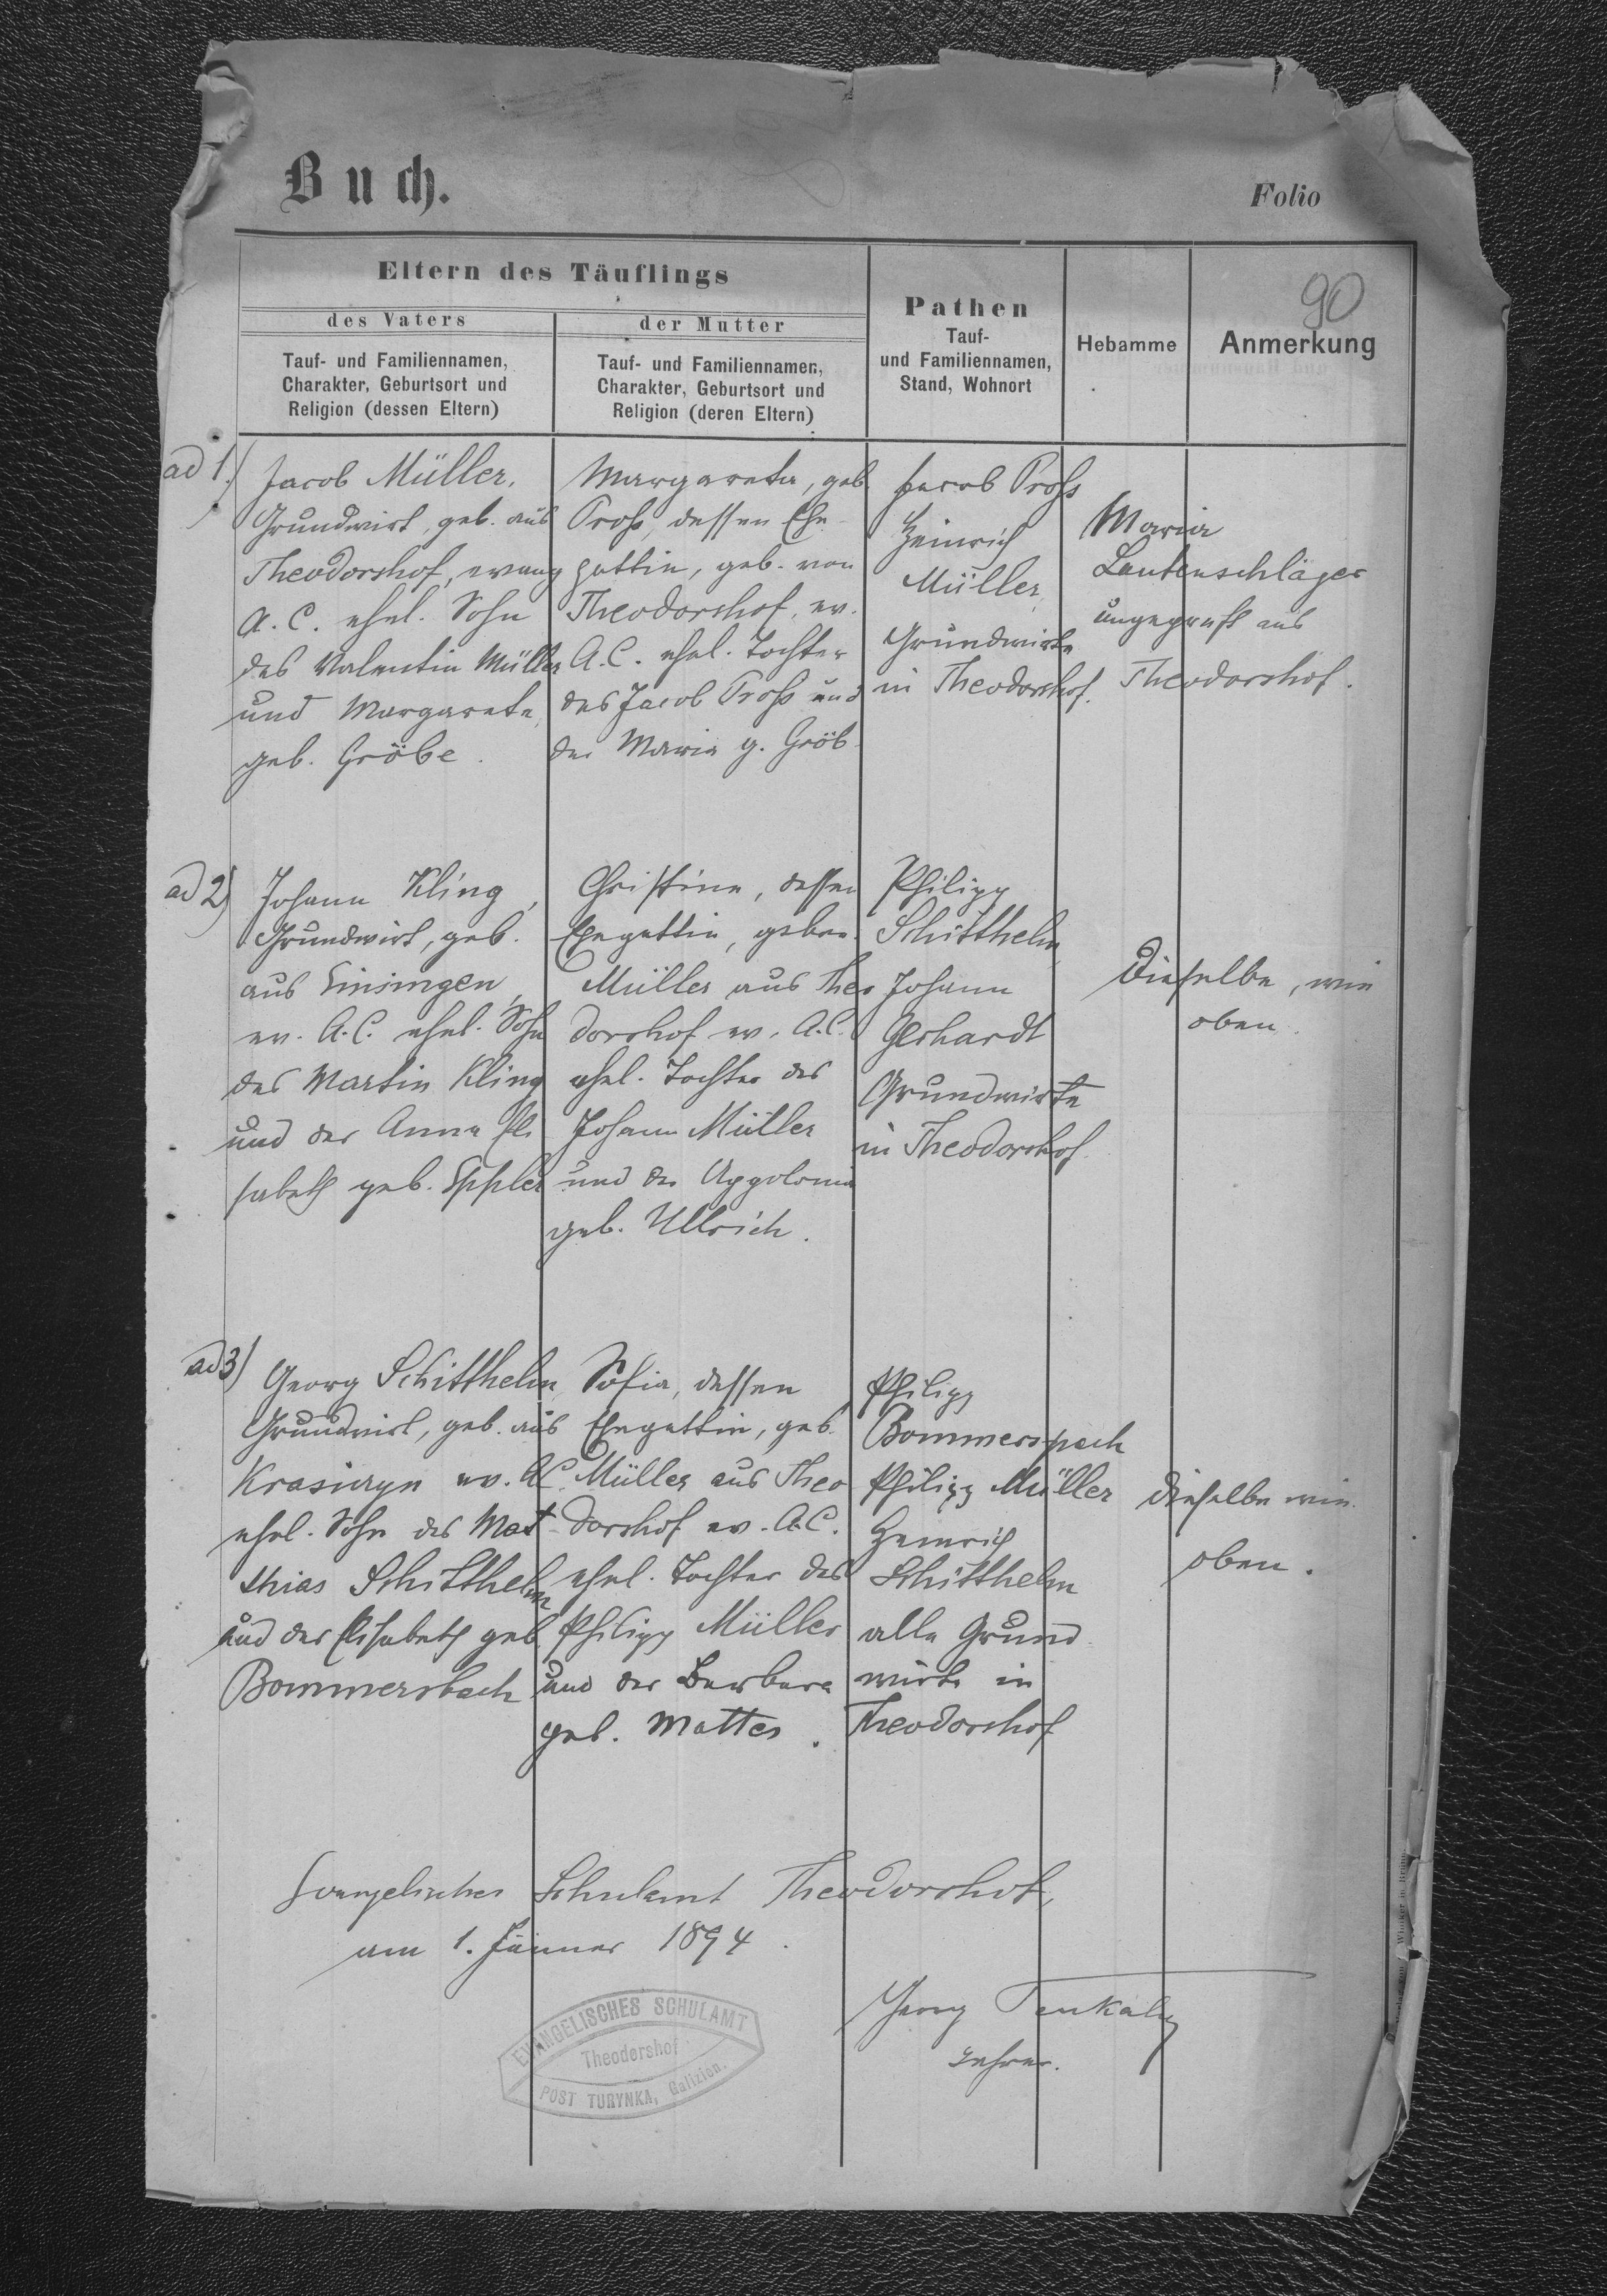 Buch.
Folio
90
Eltern des Täuflings
des Vaters
Tauf- und Familiennamen,
Charakter, Geburtsort und
Religion (dessen Eltern)
der Mutter
Tauf- und Familiennamen,
Charakter, Geburtsort und
Religion (deren Eltern)
Pathen
Tauf-
und Familiennamen,
Stand, Wohnort
Hebamme
Anmerkung
ad 1.)
Jacob Müller,
Grundwirt, geb. aus
Theodorshof, evang
A. C. ehel. Sohn
des Valentin Müller
und Margareta,
geb. Gröbe.
Margareta, geb.
Proß, dessen Ehe-
gattin, geb. von
Theodorshof, ev.
A. C. ehel. Tochter
des Jacob Proß und
der Maria g. Gröb.
Jacob Proß
Heinrich
Müller,
Grundwirte
in Theodorshof.
Maria
Lautenschläger
ungeprüft aus
Theodorshof.
ad 2)
Johann Kling,
Grundwirt, geb.
aus Einsingen,
ev. A. C. ehel. Sohn
des Martin Kling
und der Anna Eli
sabeth geb. Eppler
Christine, dessen
Ehegattin, gebor.
Müller aus Theo
dorshof ev. A. C.
ehel. Tochter des
Johann Müller
und der Appolonia
geb. Ullrich.
Philipp
Schitthelm,
Johann
Gerhardt
Grundwirte
in Theodorshof.
Dieselbe, wie
oben.
ad 3)
Georg Schitthelm,
Grundwirt, geb. aus
Krasiczyn ev. A.C.
ehel. Sohn des Mat-
thias Schitthelm
und der Elisabeth geb.
Bommersbach
Sofia, dessen
Ehegattin, geb.
Müller aus Theo
dorshof ev. A. C.
ehel. Tochter des
Philipp Müller
und der Barbara
geb. Mattes.
Philipp
Bommerspach
Philipp Müller
Heinrich
Schitthelm
alle Grund-
wirte in
Theodorshof
Dieselbe wie
oben.
Evangelisches Schulamt Theodorshof,
am 1. Jänner 1894.
Georg
Lehrer.
EVANGELISCHES SCHULAMT
Theodershof
POST TURYNKA, Galizien.